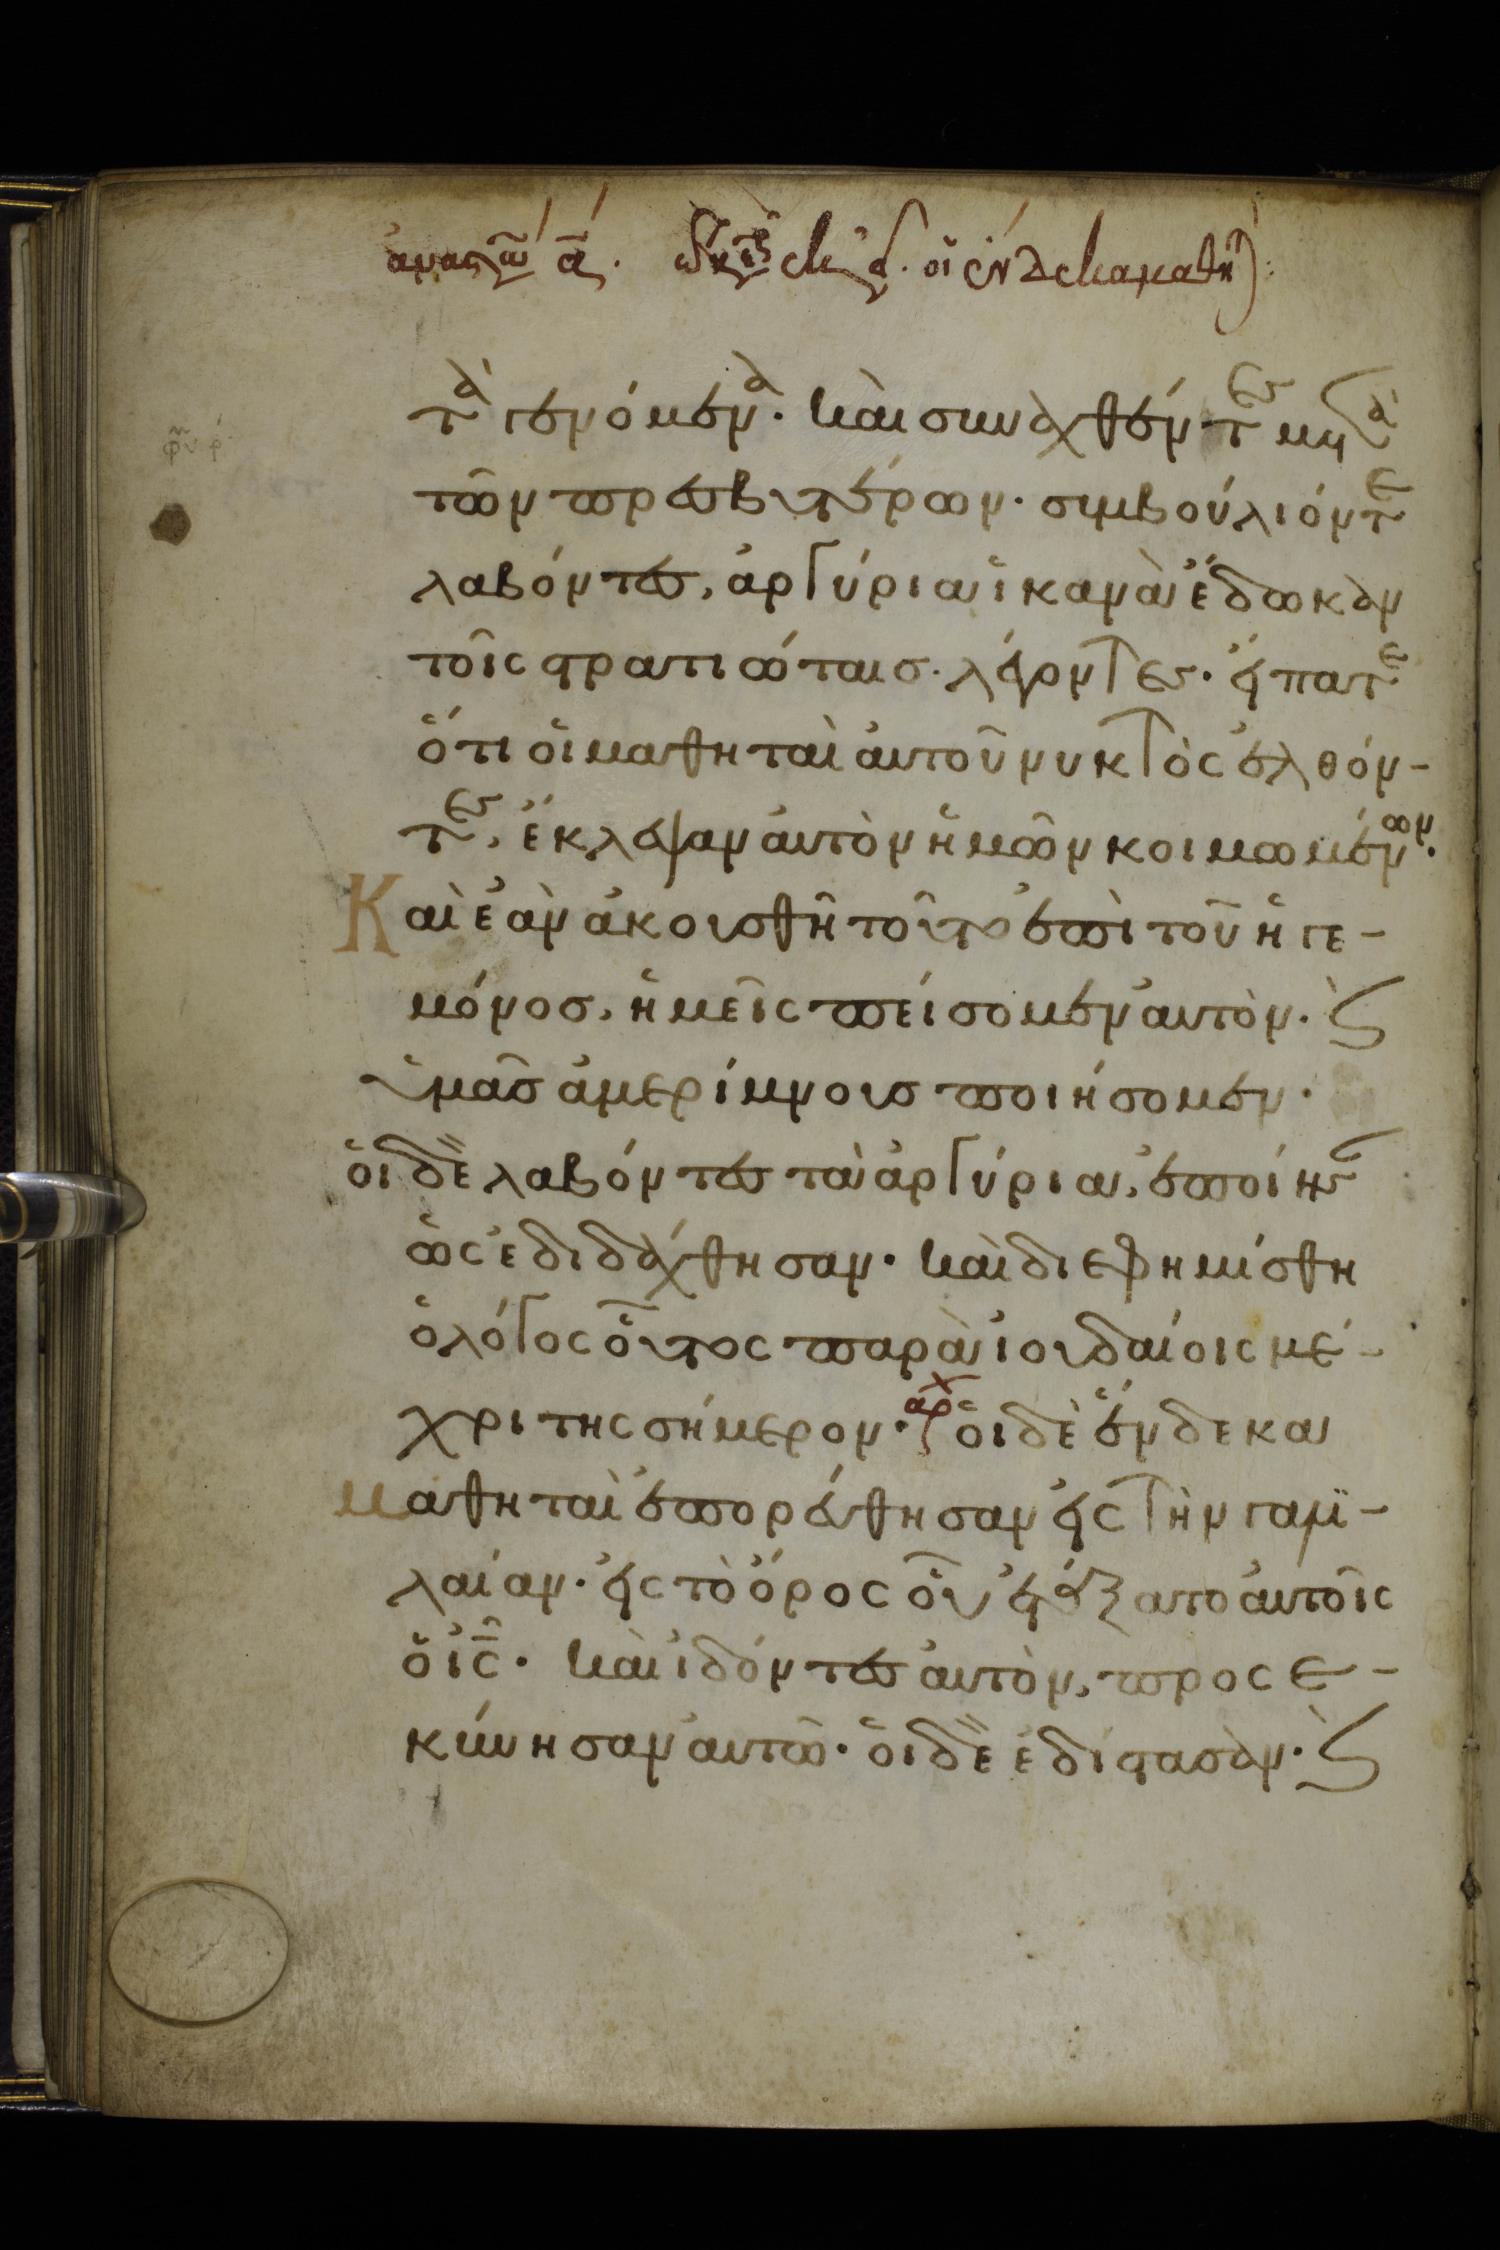 τὰ γενόμενα. καὶ συναχθέντες μετὰ
τῶν πρεσβυτέρων. συμβούλιόν τε
λαβόντες, ἀργύρια ἱκανὰ ἔδωκαν
τοῖς στρατιώταισ. λέγοντες. εἴπατε
ὅτι οἱ μαθηταὶ ἀυτοῦ νυκτὸς ἐλθόν-
τες, ἔκλεψαν ἀυτὸν ἡμῶν κοιμωμένων.
Καὶ ἐὰν ἀκουσθῆ τοῦτο ἐπὶ τοῦ ἡγε-
μόνοσ, ἡμεῖς πείσομεν ἀυτὸν. καὶ
ὑμᾶσ ἀμερίμνουσ ποιήσομεν.
ὁι δὲ λαβόντες τὰ ἀργύρια, ἐποίησαν
ὡς ἐδιδάχθησαν. καὶ διεφημίσθη
ὁ λόγος οὗτος παρὰ ἰουδαίοις μέ-
χρι της σήμερον. αρχ ὁι δὲ ἕνδεκα
μαθηταὶ ἐπορέυθησαν εἰς τὴν γαλι-
λαίαν. εἰς τὸ ὄρος οὗ ἐτάξατο ἀυτοῖς
ὁ ις. καὶ ἰδόντες ἀυτὸν, προσε-
κύνησαν ἀυτῶ. ὁι δὲ ἐδίστασαν. καὶ